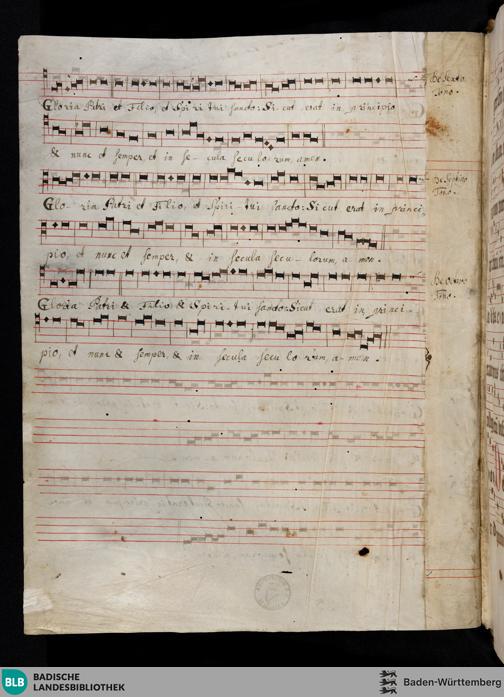 De sexto
Tono.
Gloria Patri et Filio, et Spiritui sancto: Sicut erat in principio
& nunc et semper, et in secula seculorum, amen.
De Septimo
Tono.
Gloria Patri et Filio, et Spiritui sancto: Sicut erat in princi
pio, et nunc et semper, & in secula seculorum, amen.
De Octavo
Tono.
Gloria Patri & Filio & Spiritui sancto: Sicut erat in princi-
pio, et nunc & semper, & in secula seculorum, amen.
BLB BADISCHE
LANDESBIBLIOTHEK
Baden-Württemberg